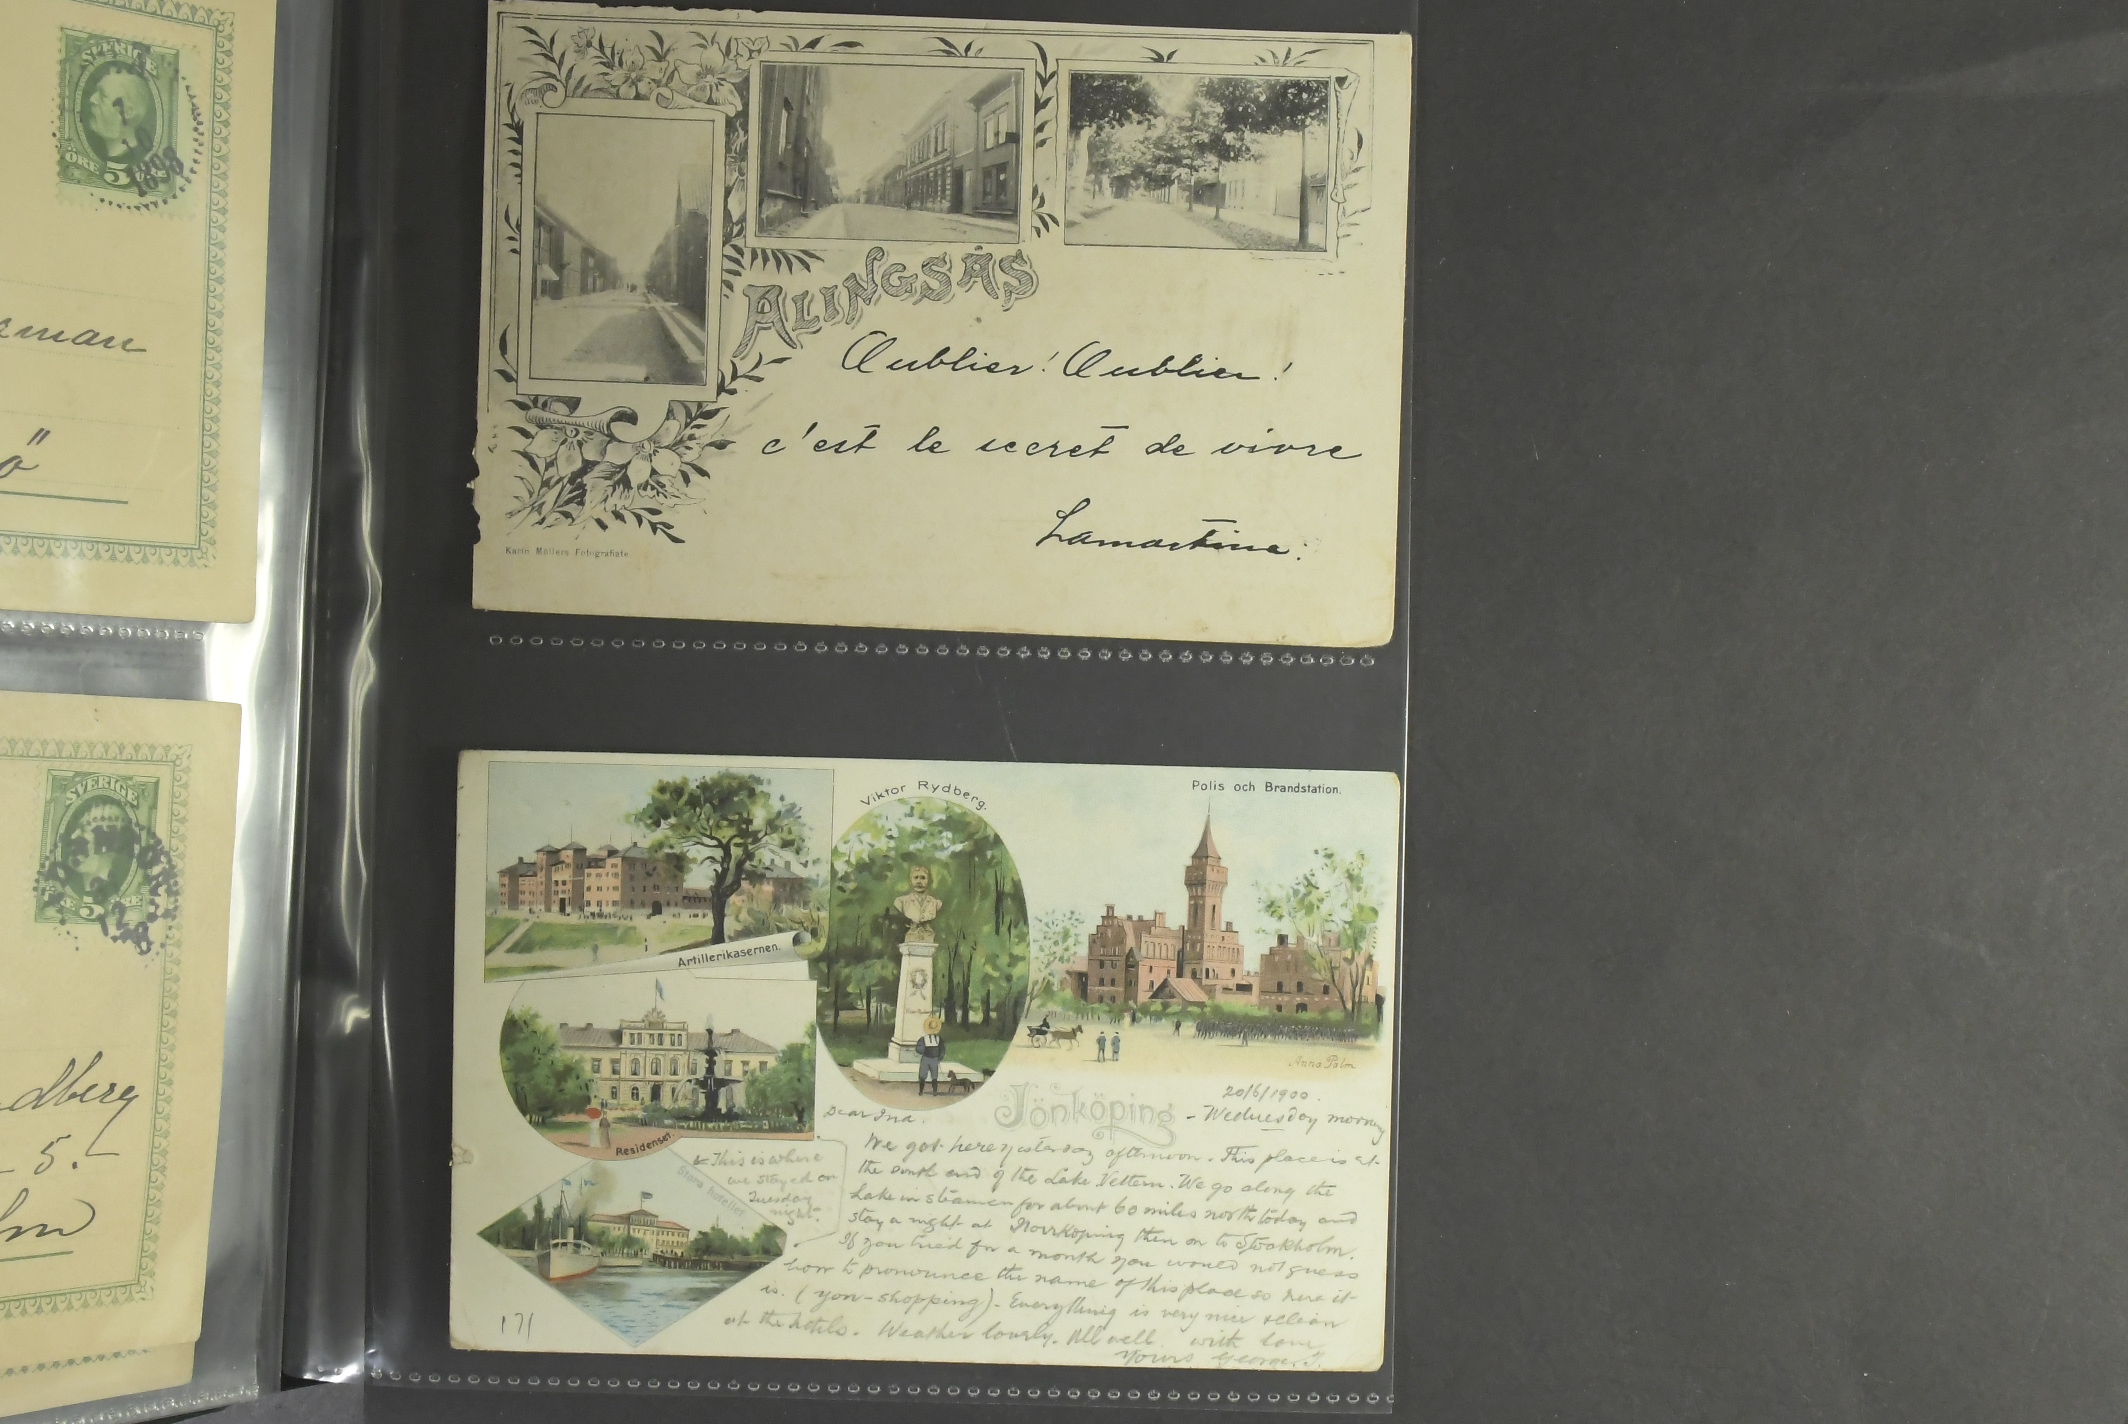 SVERIGE
ÖRE 5
1898
rman
ö"
SVERIGE
dberg
5.
lm
ALINGSÅS
Oublier! Oublier!
c'est le secret de vivre
Lamartine.
Karin Möllers Fotografiate.
Artillerikasernen.
Viktor Rydberg.
Polis och Brandstation.
Anna Palm
Residenset.
Stora hotellet
Jönköping
20/6/1900.
- Wednesday morning
Dear Ina.
We got here yesterday afternoon. This place is at
the south end of the Lake Vettern. We go along the
Lake in steamer for about 60 miles north today and
stay a night at Norrköping then on to Stockholm.
If you tried for a month you would not guess
how to pronounce the name of this place so here it
is. (yon-shopping). Everything is very nice & clean
at the hotels. Weather lovely. All well. with love
Yours George. T.
This is where
we stayed on
Tuesday
night.
171